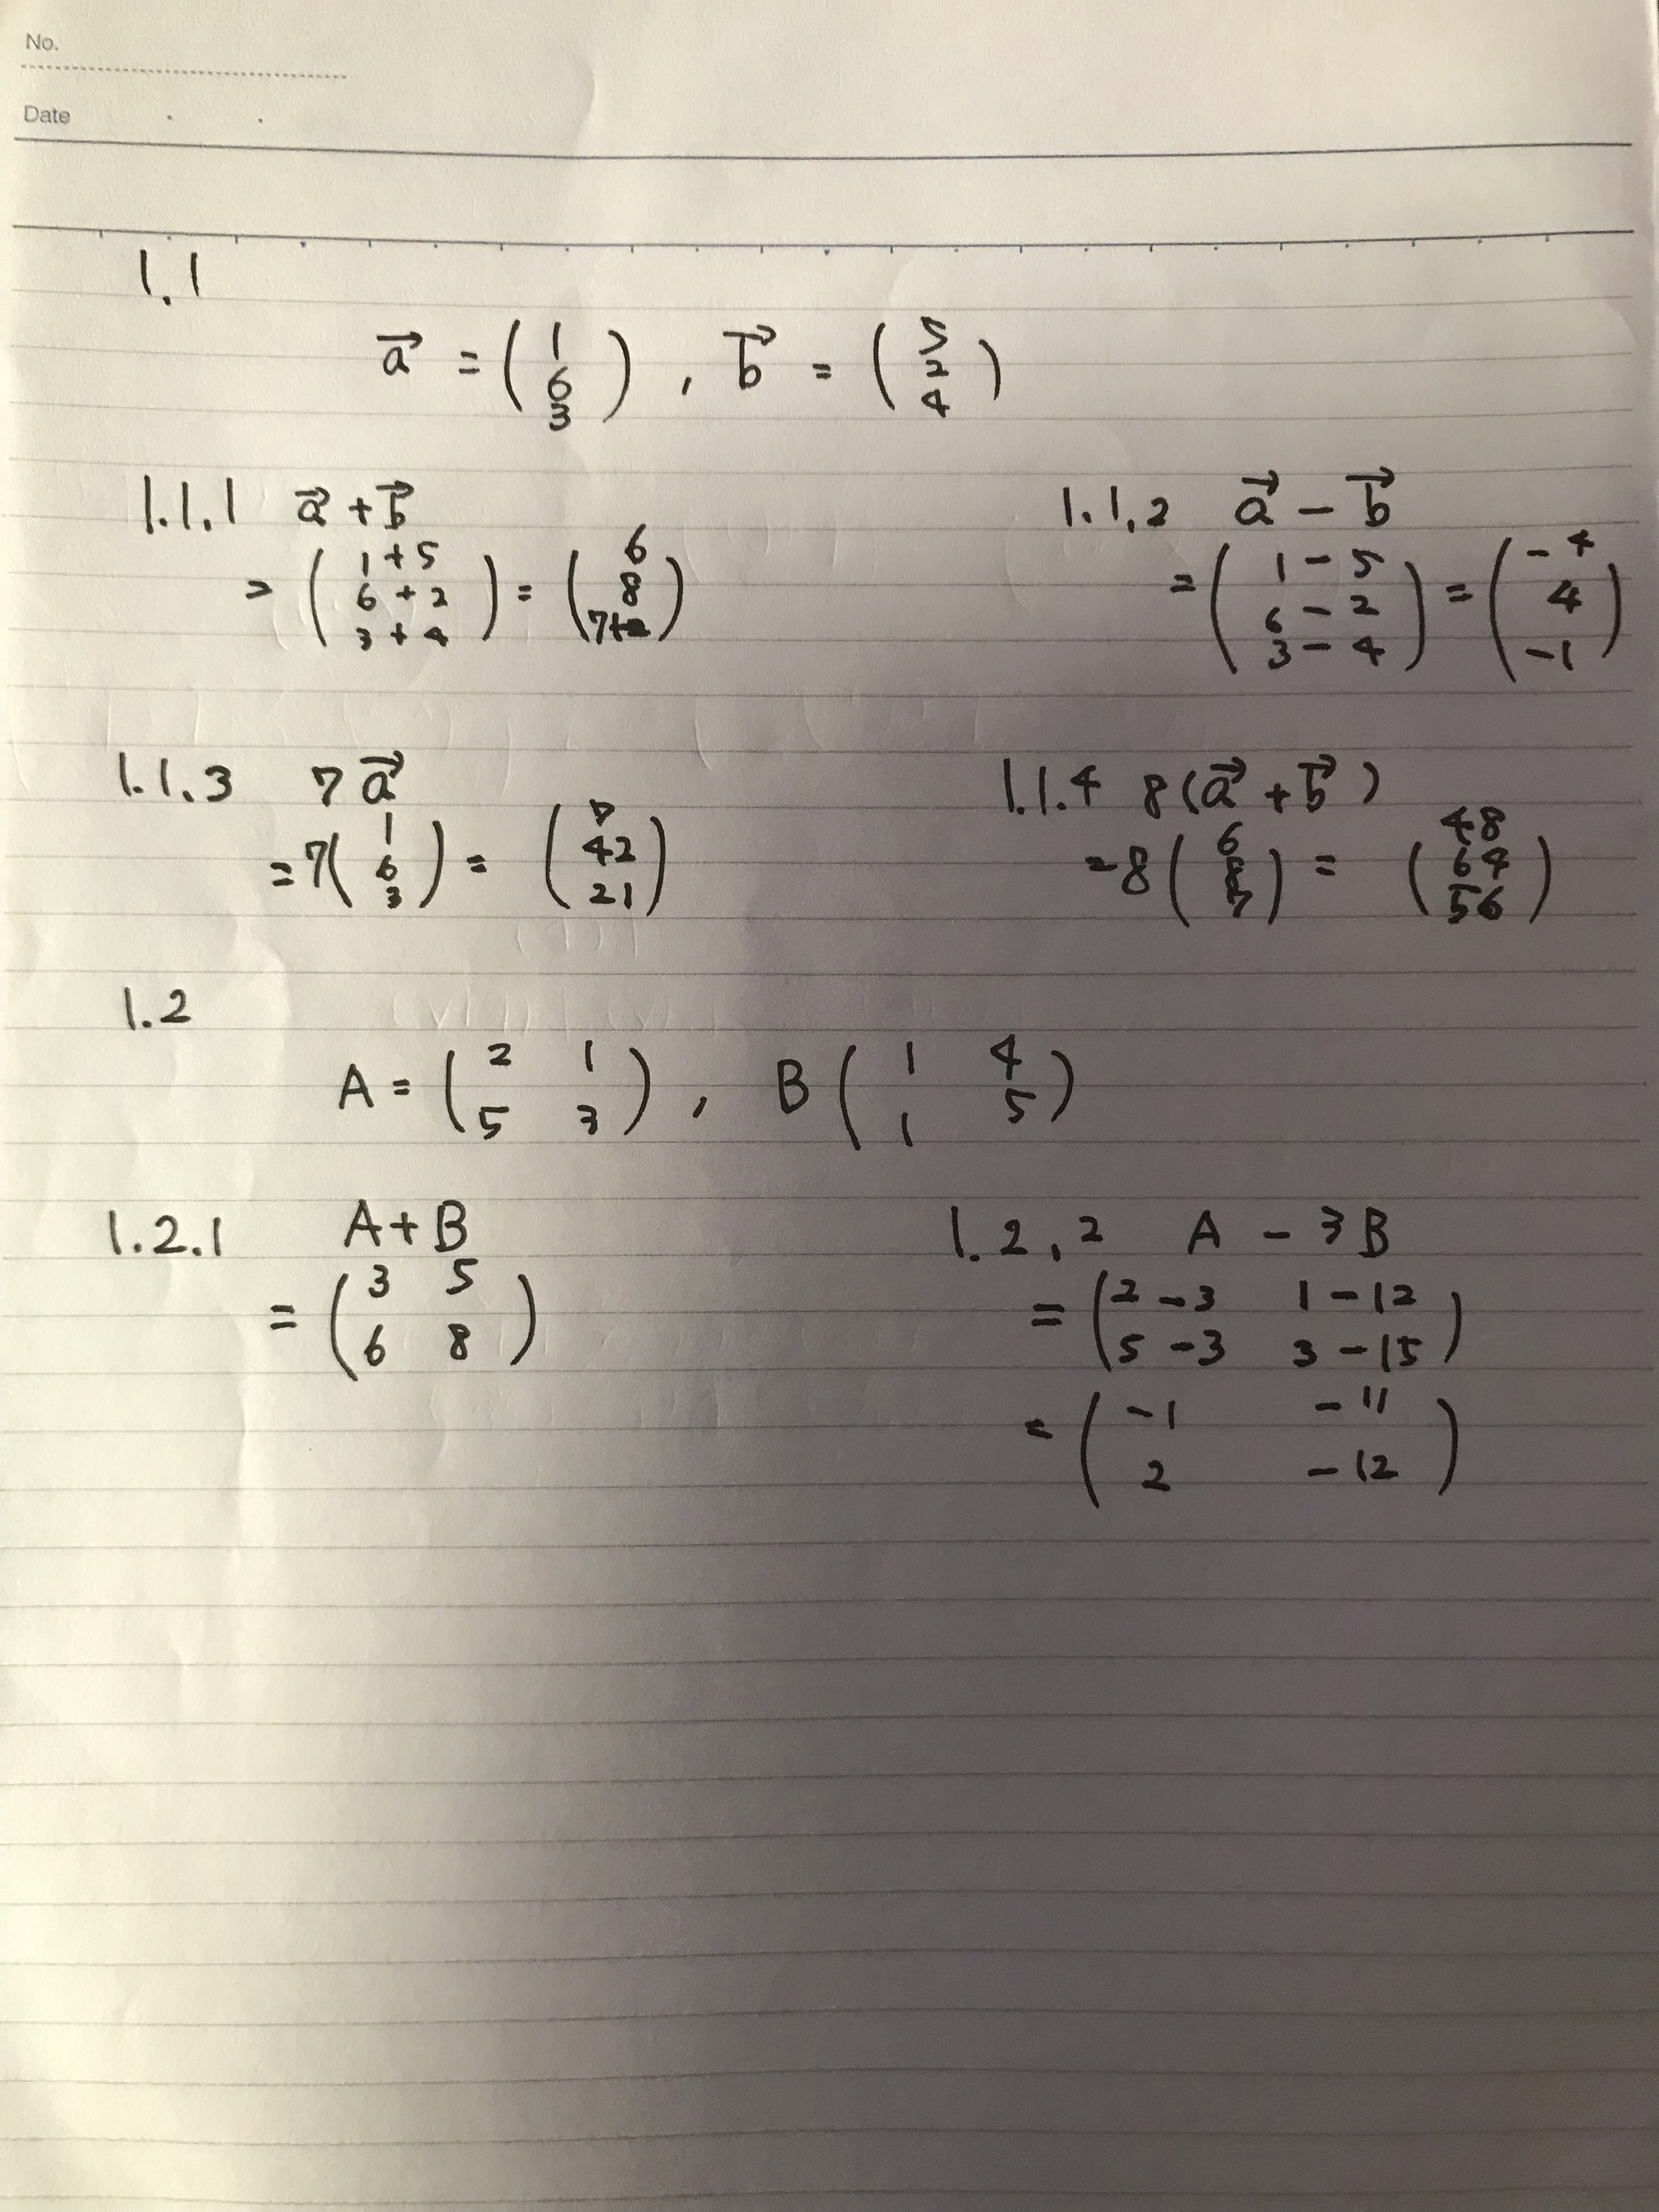 No.
Date
1.1
a⃗ = ( 1 6 3 ) , b⃗ = ( 5 2 4 )
1.1.1 a⃗ + b⃗
= ( 1 + 5 6 + 2 3 + 4 ) = ( 6 8 7 )
1.1.2 a⃗ − b⃗
= ( 1 − 5 6 − 2 3 − 4 ) = ( −4 4 −1 )
1.1.3 7 a⃗
= 7 ( 1 6 3 ) = ( 7 42 21 )
1.1.4 8 ( a⃗ + b⃗ )
= 8 ( 6 8 7 ) = ( 48 64 56 )
1.2
A = ( 2 1 5 3 ) , B ( 1 4 1 5 )
1.2.1 A + B
= ( 3 5 6 8 )
1.2.2 A − 3B
= ( 2 − 3 1 − 12 5 − 3 3 − 15 )
= ( −1 −11 2 −12 )